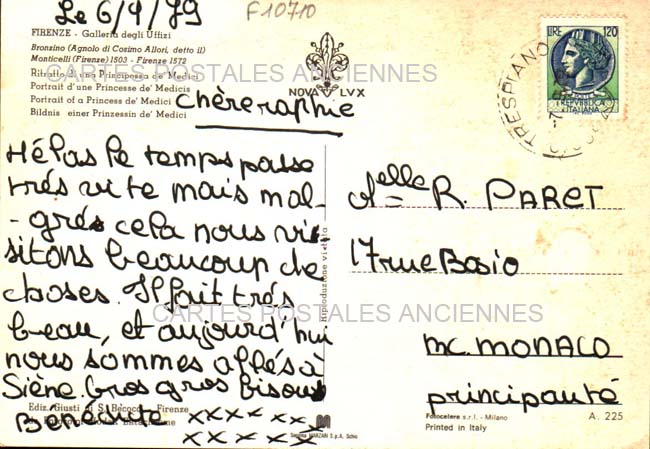 Le 6/4/79
F10710
FIRENZE - Galleria degli Uffizi
Bronzino (Agnolo di Cosimo Allori, detto il)
Monticelli (Firenze) 1503 - Firenze 1572
Ritratto d'una Principessa de' Medici
Portrait d'une Princesse de' Medicis
Portrait of a Princess de' Medici
Bildnis einer Prinzessin de' Medici
NOVA LVX
LIRE 120
REPVBBLICA
ITALIANA
TRESPIANO
CARTES POSTALES ANCIENNES
chère raphie
Hélas le temps passe
très vite mais mal-
-grés cela nous vi
sitons beaucoup de
choses. Il fait très
beau, et aujourd'hui
nous sommes allés à
Siène. Gros gros bisous
Bénédicte xxxxxxx
xxxxxx
Riproduzione vietata
Melle R. PARET
17 rue Bosio
CARTES POSTALES ANCIENNES
MC. MONACO
principauté
Ediz. Giusti di S. Becocci - Firenze
Fotocelere s.r.l. - Milano
Printed in Italy
A. 225
S.p.A.